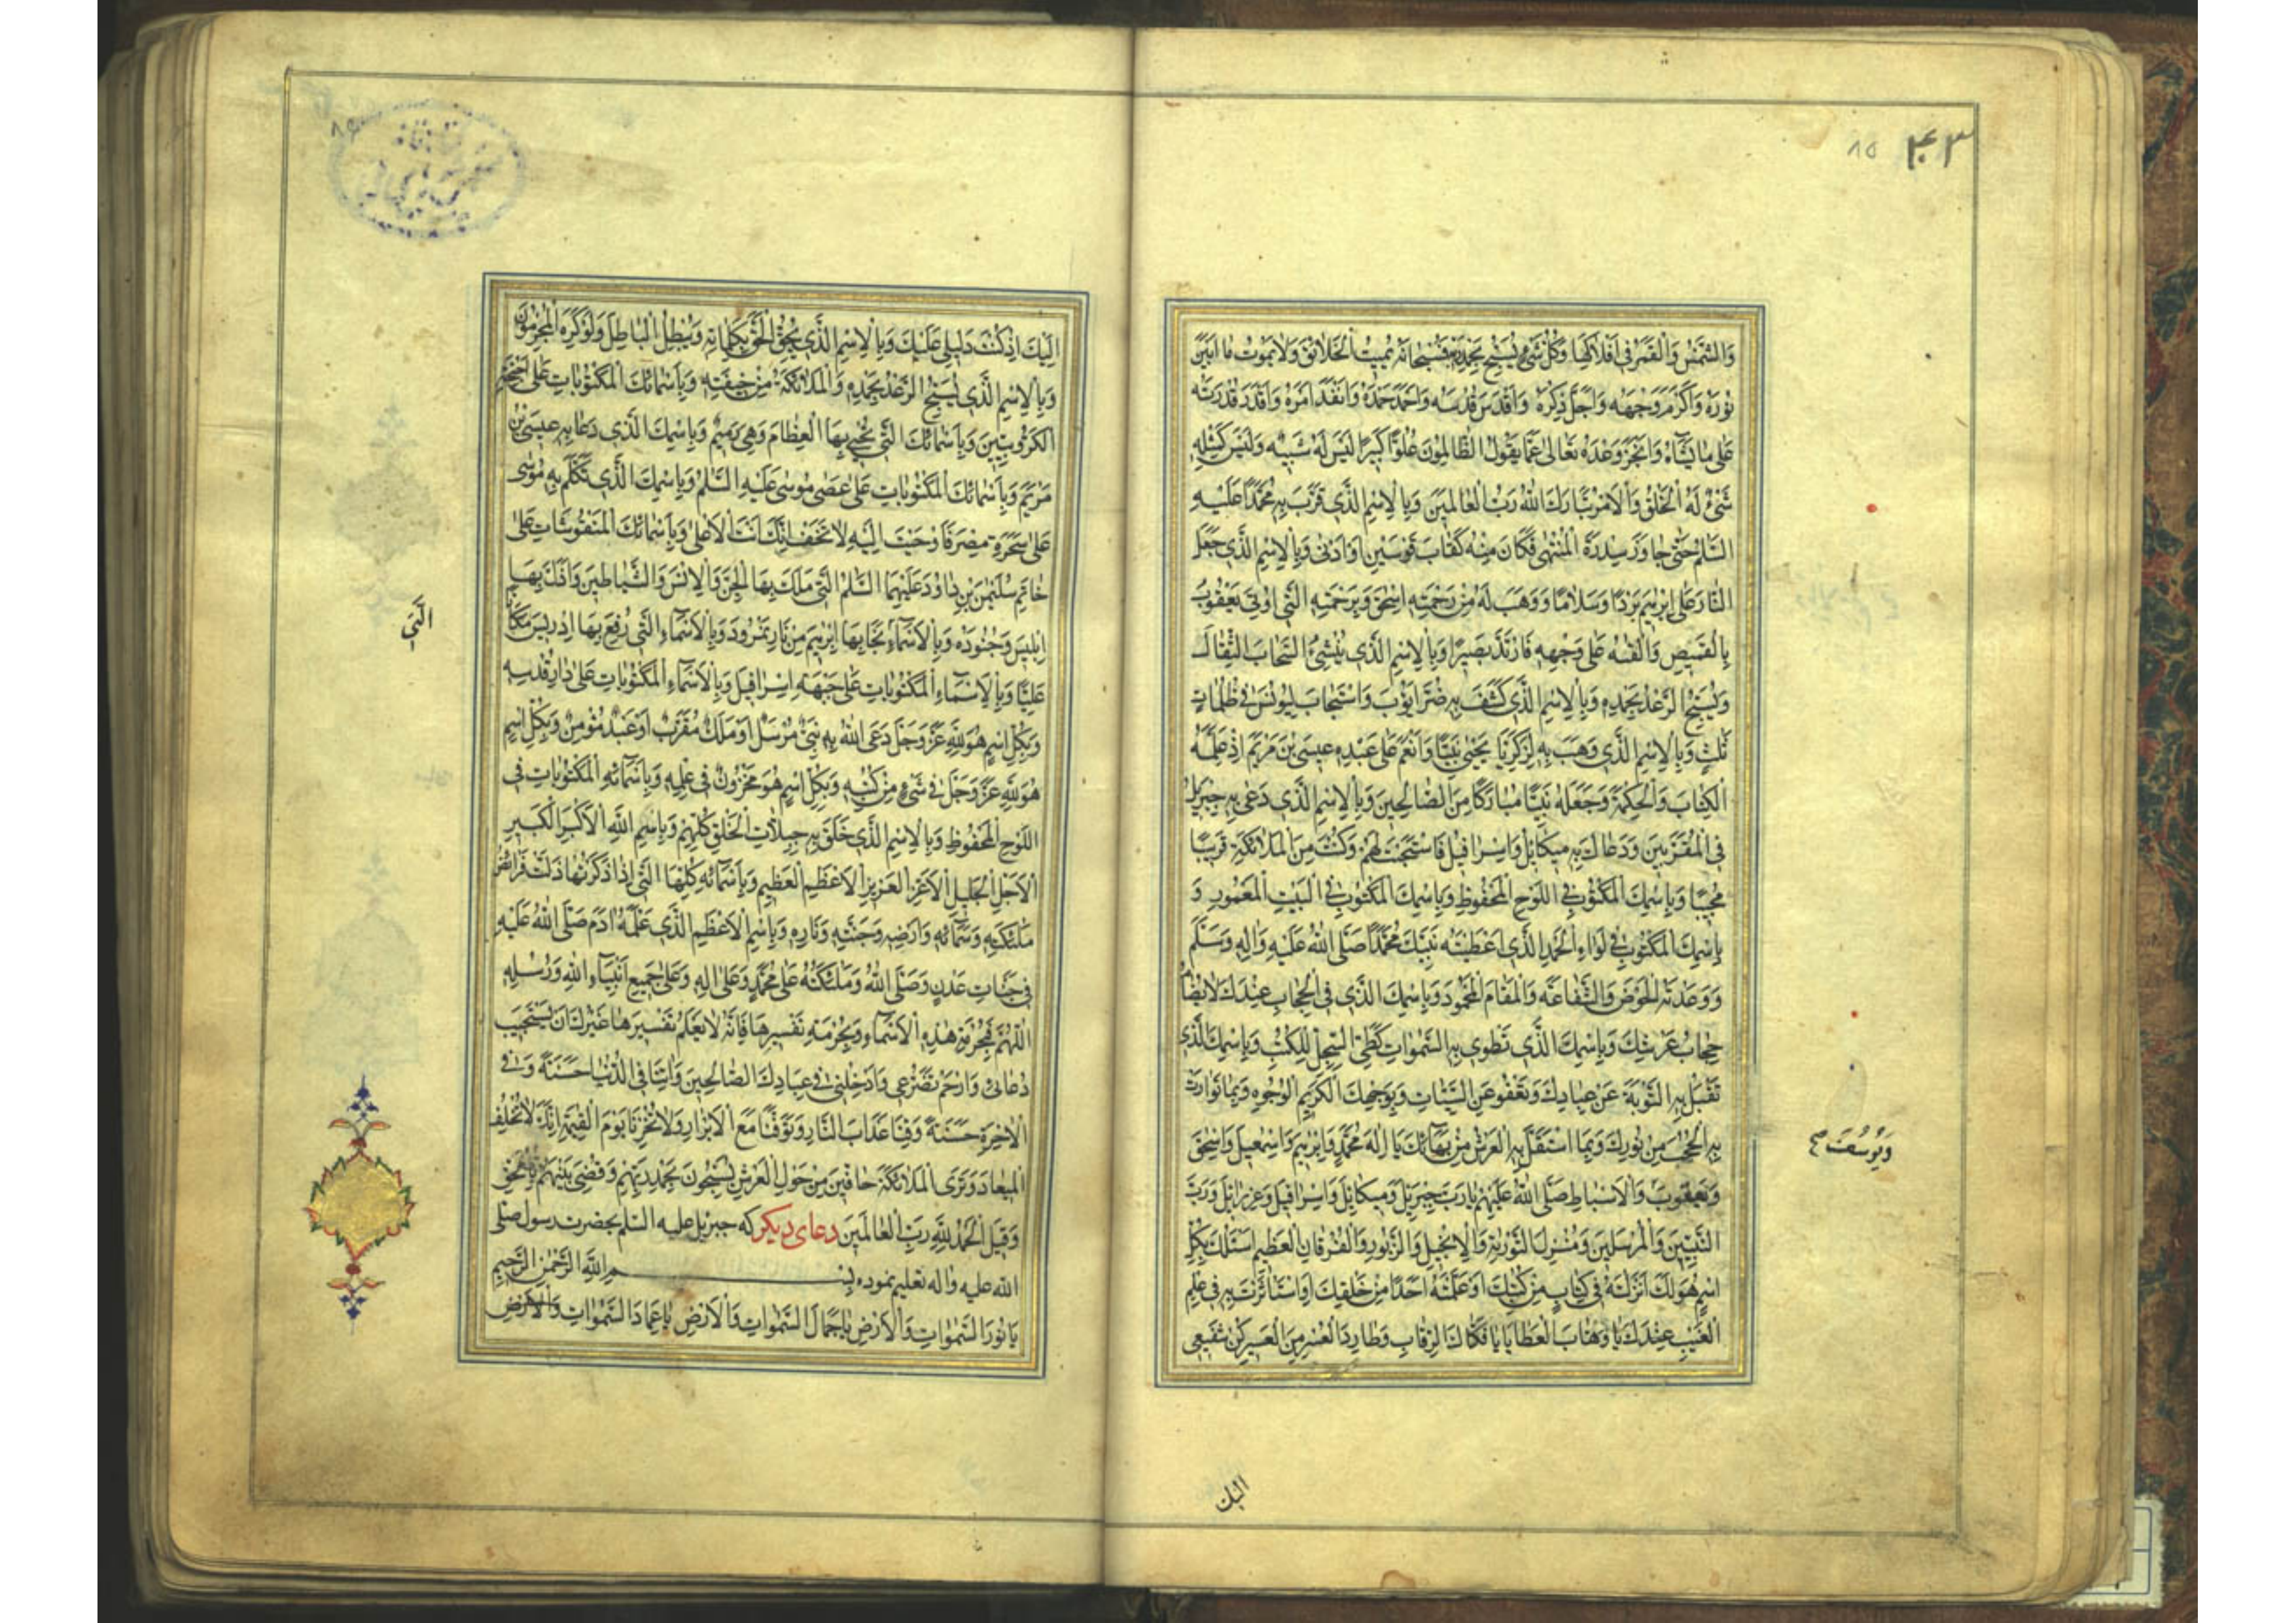 ٤٣
٨٥
وَالشَّمْسَ وَالْقَمَرَ فِي أَفْلَاكِهَا وَكُلُّ شَيْءٍ يُسَبِّحُ بِحَمْدِهِ فَسُبْحَانَهُ يُمِيتُ الْخَلَائِقَ وَلَا يَمُوتُ مَا أَبْيَنَ
نُورَهُ وَأَكْرَمَ وَجْهَهُ وَأَجَلَّ ذِكْرَهُ وَأَقْدَسَ قُدْسَهُ وَأَحْمَدَ حَمْدَهُ وَأَنْفَذَ أَمْرَهُ وَأَقْدَرَ قُدْرَتَهُ
عَلَى مَا يَشَاءُ وَأَنْجَزَ وَعْدَهُ تَعَالَى عَمَّا يَقُولُ الظَّالِمُونَ عُلُوًّا كَبِيرًا لَيْسَ لَهُ شَبِيهٌ وَلَيْسَ كَمِثْلِهِ
شَيْءٌ لَهُ الْخَلْقُ وَالْأَمْرُ تَبَارَكَ اللهُ رَبُّ الْعَالَمِينَ وَبِالْإِسْمِ الَّذِي قَرَّبَ بِهِ مُحَمَّدًا عَلَيْهِ
السَّلَمُ حَتَّى جَاوَزَ سِدْرَةَ الْمُنْتَهَى فَكَانَ مِنْهُ كَقَابَ قَوْسَيْنِ أَوْ أَدْنَى وَبِالْإِسْمِ الَّذِي جَعَلَ
النَّارَ عَلَى إِبْرٰهِيمَ بَرْدًا وَسَلَامًا وَوَهَبَ لَهُ مِنْ رَحْمَتِهِ إِسْحٰقَ وَبِرَحْمَتِهِ الَّتِي أُوتِيَ يَعْقُوبُ
بِالْقَمِيصِ وَأَلْقَتْهُ عَلَى وَجْهِهِ فَارْتَدَّ بَصِيرًا وَبِالْإِسْمِ الَّذِي يُنْشِئُ السَّحَابَ الثِّقَالَ
وَيُسَبِّحُ الرَّعْدُ بِحَمْدِهِ وَبِالْإِسْمِ الَّذِي كَشَفَ بِهِ ضُرَّ أَيُّوبَ وَاسْتَجَابَ لِيُونُسَ فِي ظُلُمَاتٍ
ثَلٰثٍ وَبِالْإِسْمِ الَّذِي وَهَبَ بِهِ لِزَكَرِيَّا يَحْيَى نَبِيًّا وَأَنْعَمَ عَلَى عَبْدِهِ عِيسَى بْنِ مَرْيَمَ إِذْ عَلَّمَهُ
الْكِتَابَ وَالْحِكْمَةَ وَجَعَلَهُ نَبِيًّا مُبَارَكًا مِنَ الصَّالِحِينَ وَبِالْإِسْمِ الَّذِي دَعَى بِهِ جِبْرِيلُ
فِي الْمُقَرَّبِينَ وَدَعَاكَ بِهِ مِيكَائِلُ وَإِسْرَافِيلُ فَاسْتَجَبْتَ لَهُمْ وَكُنْتَ مِنَ الْمَلَائِكَةِ قَرِيبًا
مُجِيبًا وَبِاسْمِكَ الْمَكْتُوبِ فِي اللَّوْحِ الْمَحْفُوظِ وَبِاسْمِكَ الْمَكْتُوبِ فِي الْبَيْتِ الْمَعْمُورِ وَ
بِاسْمِكَ الْمَكْتُوبِ فِي لِوَاءِ الْحَمْدِ الَّذِي أَعْطَيْتَهُ نَبِيَّكَ مُحَمَّدًا صَلَّى اللهُ عَلَيْهِ وَآلِهِ وَسَلَّمَ
وَوَعَدْتَهُ الْحَوْضَ وَالشَّفَاعَةَ وَالْمَقَامَ الْمَحْمُودَ وَبِاسْمِكَ الَّذِي فِي الْحِجَابِ عِنْدَكَ لَا يُضَامُ
حِجَابُ عَرْشِكَ وَبِاسْمِكَ الَّذِي تَطْوِي بِهِ السَّمٰوَاتِ كَطَيِّ السِّجِلِّ لِلْكُتُبِ وَبِاسْمِكَ الَّذِي
تَقْبَلُ بِهِ التَّوْبَةَ عَنْ عِبَادِكَ وَتَعْفُو عَنِ السَّيِّئَاتِ وَبِوَجْهِكَ الْكَرِيمِ الْوُجُوهِ وَبِمَا تَوَارَتْ
بِهِ الْحُجُبُ مِنْ نُورِكَ وَبِمَا اسْتَقَلَّ بِهِ الْعَرْشُ مِنْ بَهَائِكَ يَا إِلٰهَ مُحَمَّدٍ وَإِبْرٰهِيمَ وَإِسْمٰعِيلَ وَإِسْحٰقَ
وَيُوسُفَ صح
وَيَعْقُوبَ وَالْأَسْبَاطِ صَلَّى اللهُ عَلَيْهِمْ يَا رَبَّ جِبْرِيلَ وَمِيكَائِلَ وَإِسْرَافِيلَ وَعِزْرَائِلَ وَرَبَّ
النَّبِيِّينَ وَالْمُرْسَلِينَ وَمُنْزِلَ التَّوْرٰيةِ وَالْإِنْجِيلِ وَالزَّبُورِ وَالْفُرْقَانِ الْعَظِيمِ أَسْئَلُكَ بِكُلِّ
اسْمٍ هُوَ لَكَ أَنْزَلْتَهُ فِي كِتَابٍ مِنْ كُتُبِكَ أَوْ عَلَّمْتَهُ أَحَدًا مِنْ خَلْقِكَ أَوِ اسْتَأْثَرْتَ بِهِ فِي عِلْمِ
الْغَيْبِ عِنْدَكَ يَا وَهَّابَ الْعَطَايَا يَا فَكَّاكَ الرِّقَابِ وَطَارِدَ الْعُسْرِ مِنَ الْعَسِيرِ كُنْ شَفِيعِي
اليك
إِلَيْكَ إِذْ كُنْتَ دَلِيلِي عَلَيْكَ وَبِالْإِسْمِ الَّذِي يُحِقُّ الْحَقَّ بِكَلِمَاتِهِ وَيُبْطِلُ الْبَاطِلَ وَلَوْ كَرِهَ الْمُجْرِمُونَ
وَبِالْإِسْمِ الَّذِي يُسَبِّحُ الرَّعْدُ بِحَمْدِهِ وَالْمَلَائِكَةُ مِنْ خِيفَتِهِ وَبِأَسْمَائِكَ الْمَكْتُوبَاتِ عَلَى أَجْنِحَةِ
الْكَرُّوبِيِّينَ وَبِأَسْمَائِكَ الَّتِي تُحْيِي بِهَا الْعِظَامَ وَهِيَ رَمِيمٌ وَبِاسْمِكَ الَّذِي دَعَا بِهِ عِيسَى بْنُ
مَرْيَمَ وَبِأَسْمَائِكَ الْمَكْتُوبَاتِ عَلَى عَصَى مُوسَى عَلَيْهِ السَّلَمُ وَبِاسْمِكَ الَّذِي تَكَلَّمَ بِهِ مُوسَى
عَلَى سَحَرَةِ مِصْرَ فَأَوْحَيْتَ إِلَيْهِ لَا تَخَفْ إِنَّكَ أَنْتَ الْأَعْلَى وَبِأَسْمَائِكَ الْمَنْقُوشَاتِ عَلَى
خَاتَمِ سُلَيْمٰنَ بْنِ دَاوُدَ عَلَيْهِمَا السَّلَمُ الَّتِي مَلَكَ بِهَا الْجِنَّ وَالْإِنْسَ وَالشَّيَاطِينَ وَأَذَلَّ بِهَا
إِبْلِيسَ وَجُنُودَهُ وَبِالْأَسْمَاءِ نَجَا بِهَا إِبْرٰهِيمُ مِنْ نَارِ نَمْرُودَ وَبِالْأَسْمَاءِ الَّتِي رُفِعَ بِهَا إِدْرِيسُ مَكَانًا
الَّتِي
عَلِيًّا وَبِالْأَسْمَاءِ الْمَكْتُوبَاتِ عَلَى جَبْهَةِ إِسْرَافِيلَ وَبِالْأَسْمَاءِ الْمَكْتُوبَاتِ عَلَى دَارِ قُدْسِهِ
وَبِكُلِّ اسْمٍ هُوَ لِلّٰهِ عَزَّ وَجَلَّ دَعَى اللهَ بِهِ نَبِيٌّ مُرْسَلٌ أَوْ مَلَكٌ مُقَرَّبٌ أَوْ عَبْدٌ مُؤْمِنٌ وَبِكُلِّ اسْمٍ
هُوَ لِلّٰهِ عَزَّ وَجَلَّ فِي شَيْءٍ مِنْ كُتُبِهِ وَبِكُلِّ اسْمٍ هُوَ مَخْزُونٌ فِي عِلْمِهِ وَبِأَسْمَائِهِ الْمَكْتُوبَاتِ فِي
اللَّوْحِ الْمَحْفُوظِ وَبِالْإِسْمِ الَّذِي خَلَقَ بِهِ جِبِلَّاتِ الْخَلْقِ كُلِّهِمْ وَبِاسْمِ اللهِ الْأَكْبَرِ الْكَبِيرِ
الْأَجَلِّ الْجَلِيلِ الْأَعَزِّ الْعَزِيزِ الْأَعْظَمِ الْعَظِيمِ وَبِأَسْمَائِهِ كُلِّهَا الَّتِي إِذَا ذُكِرَتْهَا ذَلَّتْ فَرَائِصُ
مَلٰئِكَتِهِ وَسَمَائِهِ وَأَرْضِهِ وَجَنَّتِهِ وَنَارِهِ وَبِاسْمِ الْأَعْظَمِ الَّذِي عَلَّمَهُ اٰدَمَ صَلَّى اللهُ عَلَيْهِ
فِي جَنَّاتِ عَدْنٍ وَصَلَّى اللهُ وَمَلٰئِكَتُهُ عَلَى مُحَمَّدٍ وَعَلَى آلِهِ وَعَلَى جَمِيعِ أَنْبِيَاءِ اللهِ وَرُسُلِهِ
اللّٰهُمَّ فَبِحُرْمَةِ هٰذِهِ الْأَسْمَاءِ وَبِحُرْمَةِ تَفْسِيرِهَا فَإِنَّهُ لَا يَعْلَمُ تَفْسِيرَهَا غَيْرُكَ أَنْ تَسْتَجِيبَ
دُعَائِي وَارْحَمْ تَضَرُّعِي وَأَدْخِلْنِي فِي عِبَادِكَ الصَّالِحِينَ وَاٰتِنَا فِي الدُّنْيَا حَسَنَةً وَفِي
الْاٰخِرَةِ حَسَنَةً وَقِنَا عَذَابَ النَّارِ وَتَوَفَّنَا مَعَ الْأَبْرَارِ وَلَا تُخْزِنَا يَوْمَ الْقِيٰمَةِ إِنَّكَ لَا تُخْلِفُ
الْمِيعَادَ وَتَرَى الْمَلَائِكَةَ حَافِّينَ مِنْ حَوْلِ الْعَرْشِ يُسَبِّحُونَ بِحَمْدِ رَبِّهِمْ وَقُضِيَ بَيْنَهُمْ بِالْحَقِّ
وَقِيلَ الْحَمْدُ لِلّٰهِ رَبِّ الْعَالَمِينَ دعاى ديكر كه جبريل عليه السلم بحضرت رسول صلى
الله عليه وآله تعليم نموده بِسْمِ اللهِ الرَّحْمٰنِ الرَّحِيمِ
يَا نُورَ السَّمٰوَاتِ وَالْأَرْضِ يَا جَمَالَ السَّمٰوَاتِ وَالْأَرْضِ يَا عِمَادَ السَّمٰوَاتِ وَالْأَرْضِ